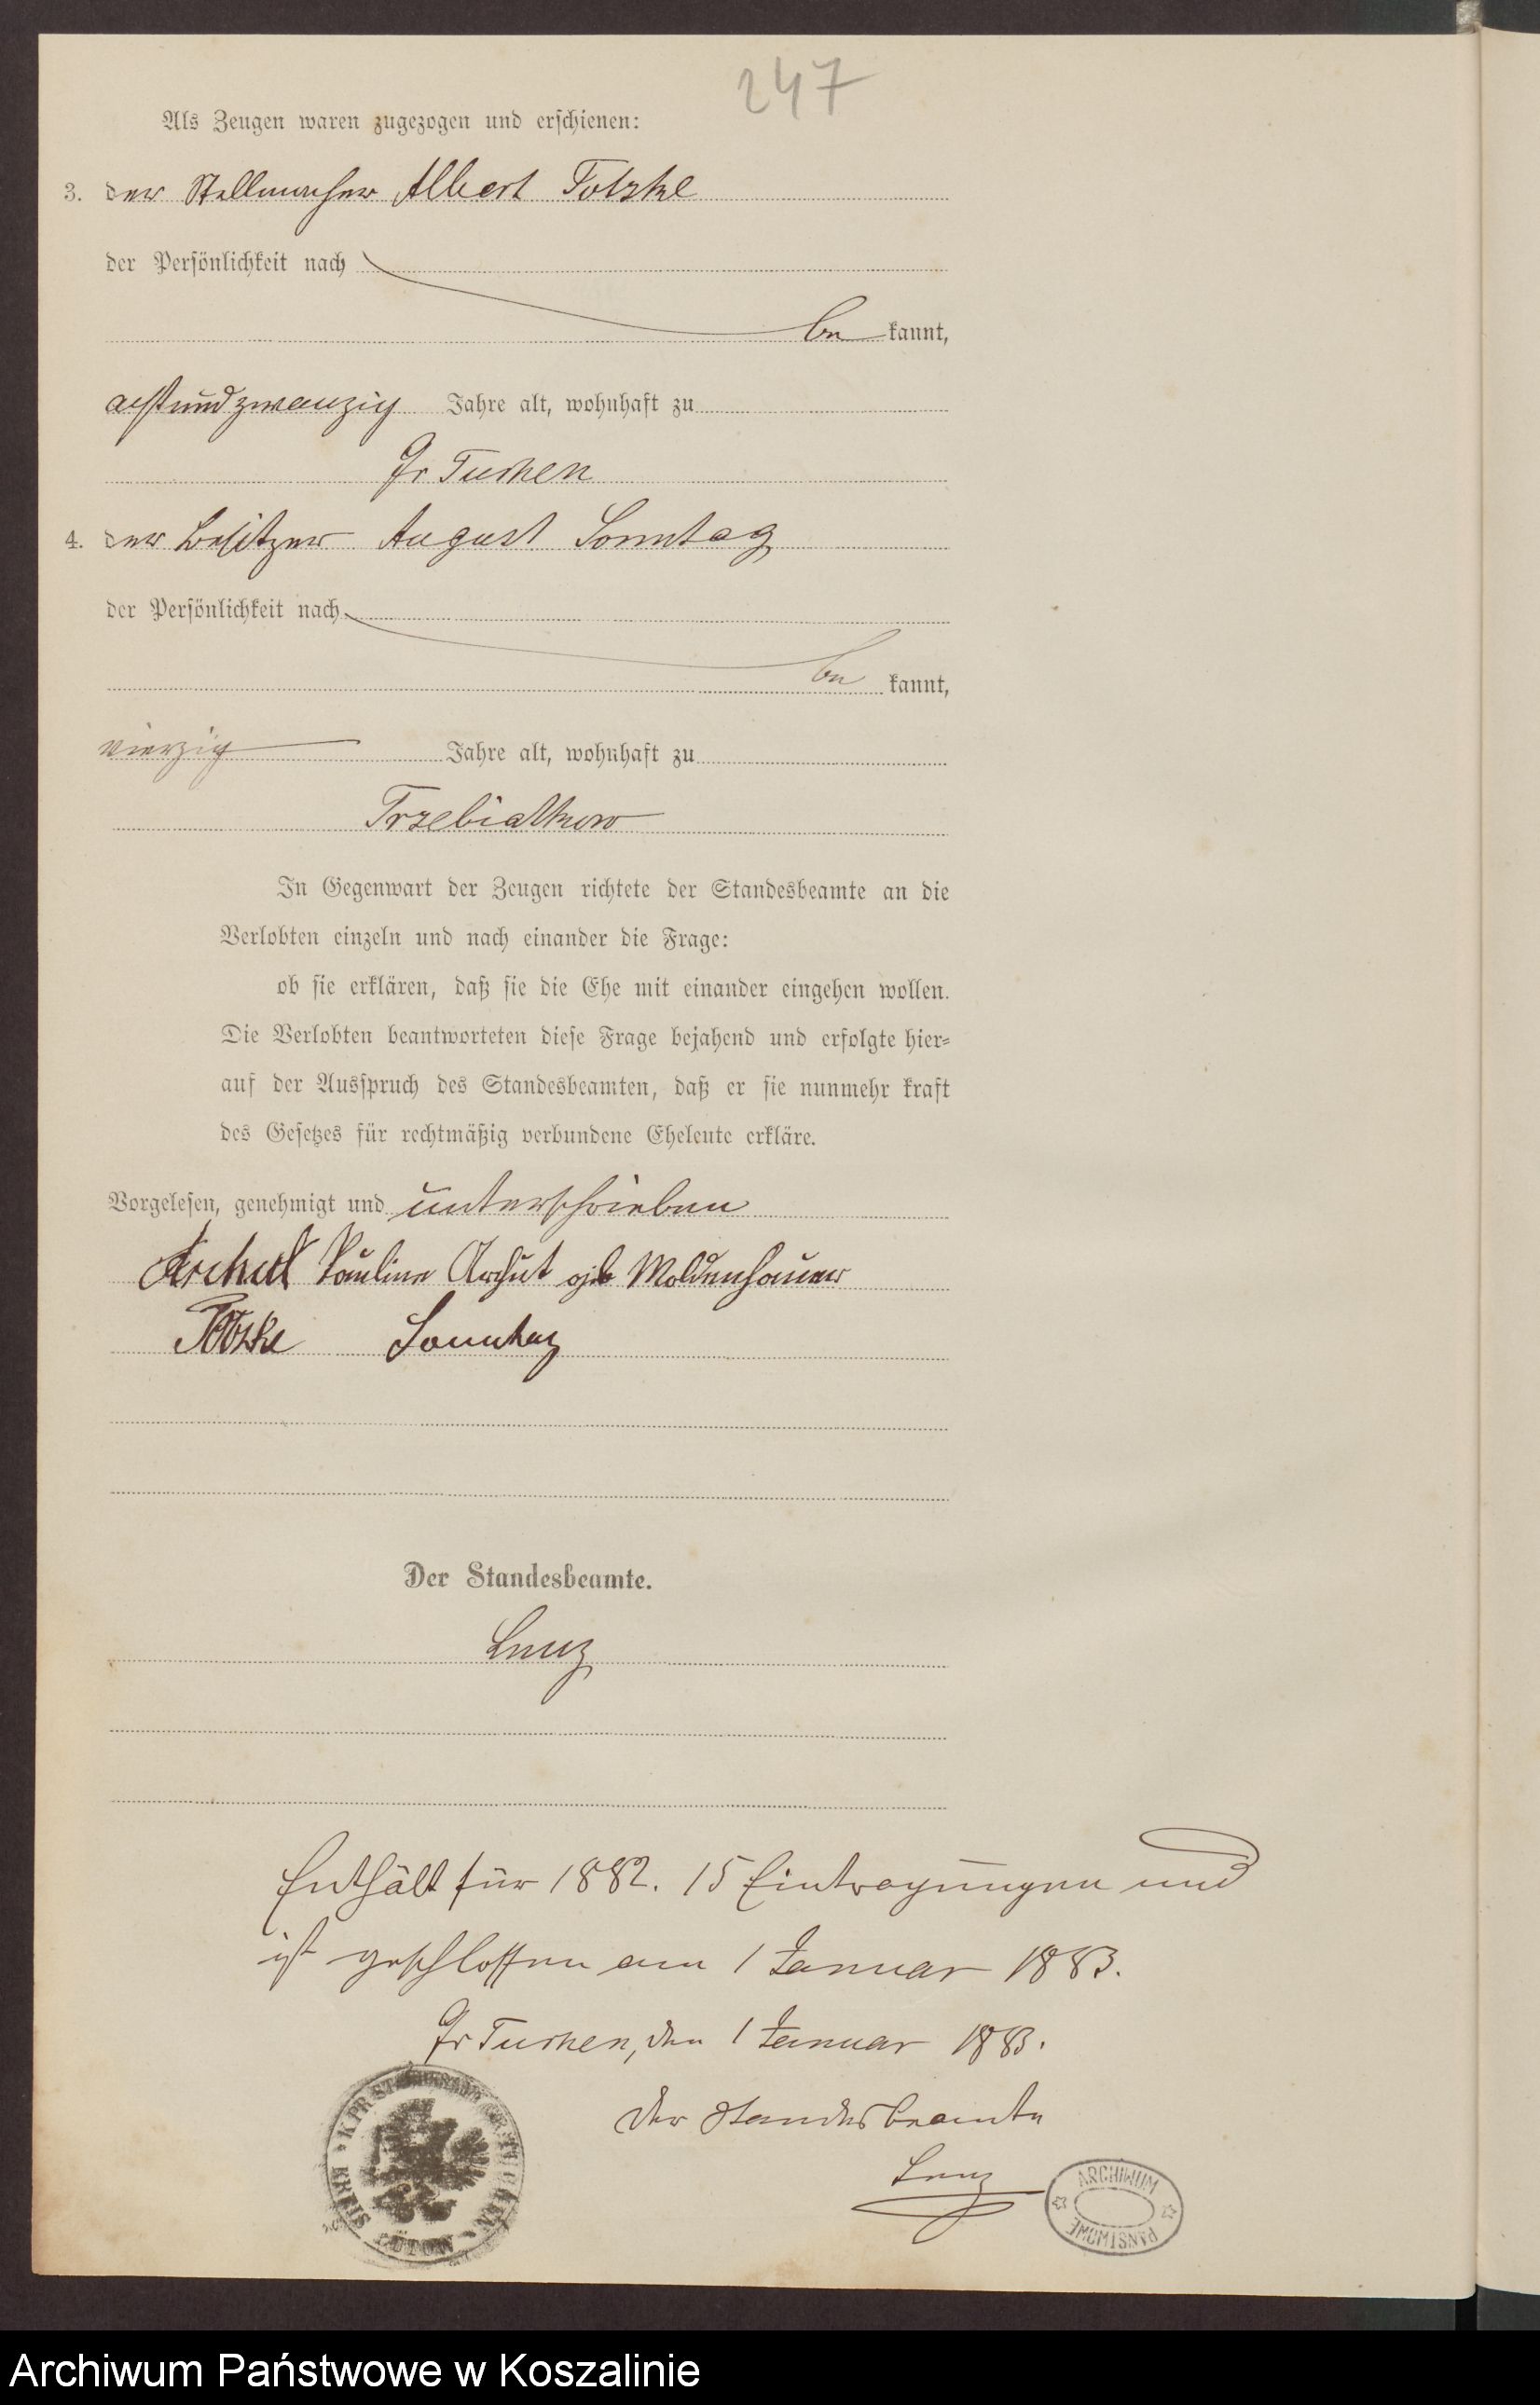 247
Als Zeugen waren zugezogen und erschienen:
3. der Stellmacher Albert Totzke
der Persönlichkeit nach
be kannt,
achtundzwanzig Jahre alt, wohnhaft zu
Gr Tuchen
4. der Besitzer August Sonntag
der Persönlichkeit nach
be kannt,
vierzig Jahre alt, wohnhaft zu
Trzebiatkow
In Gegenwart der Zeugen richtete der Standesbeamte an die
Verlobten einzeln und nach einander die Frage:
ob sie erklären, daß sie die Ehe mit einander eingehen wollen.
Die Verlobten beantworteten diese Frage bejahend und erfolgte hier-
auf der Ausspruch des Standesbeamten, daß er sie nunmehr kraft
des Gesetzes für rechtmäßig verbundene Eheleute erkläre.
Vorgelesen, genehmigt und unterschrieben
Archut Pauline Archut geb Moldenhauer
Totzke Sonntag
Der Standesbeamte.
Lenz
Enthält für 1882. 15 Eintragungen und
ist geschlossen am 1 Januar 1883.
Gr Tuchen, den 1 Januar 1883.
Der Standesbeamte
Lenz
ARCHIWUM
PAŃSTWOWE
Archiwum Państwowe w Koszalinie